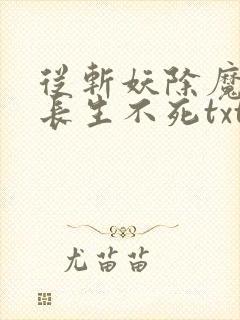 從斬妖除魔
長生不死txt
尤苗苗